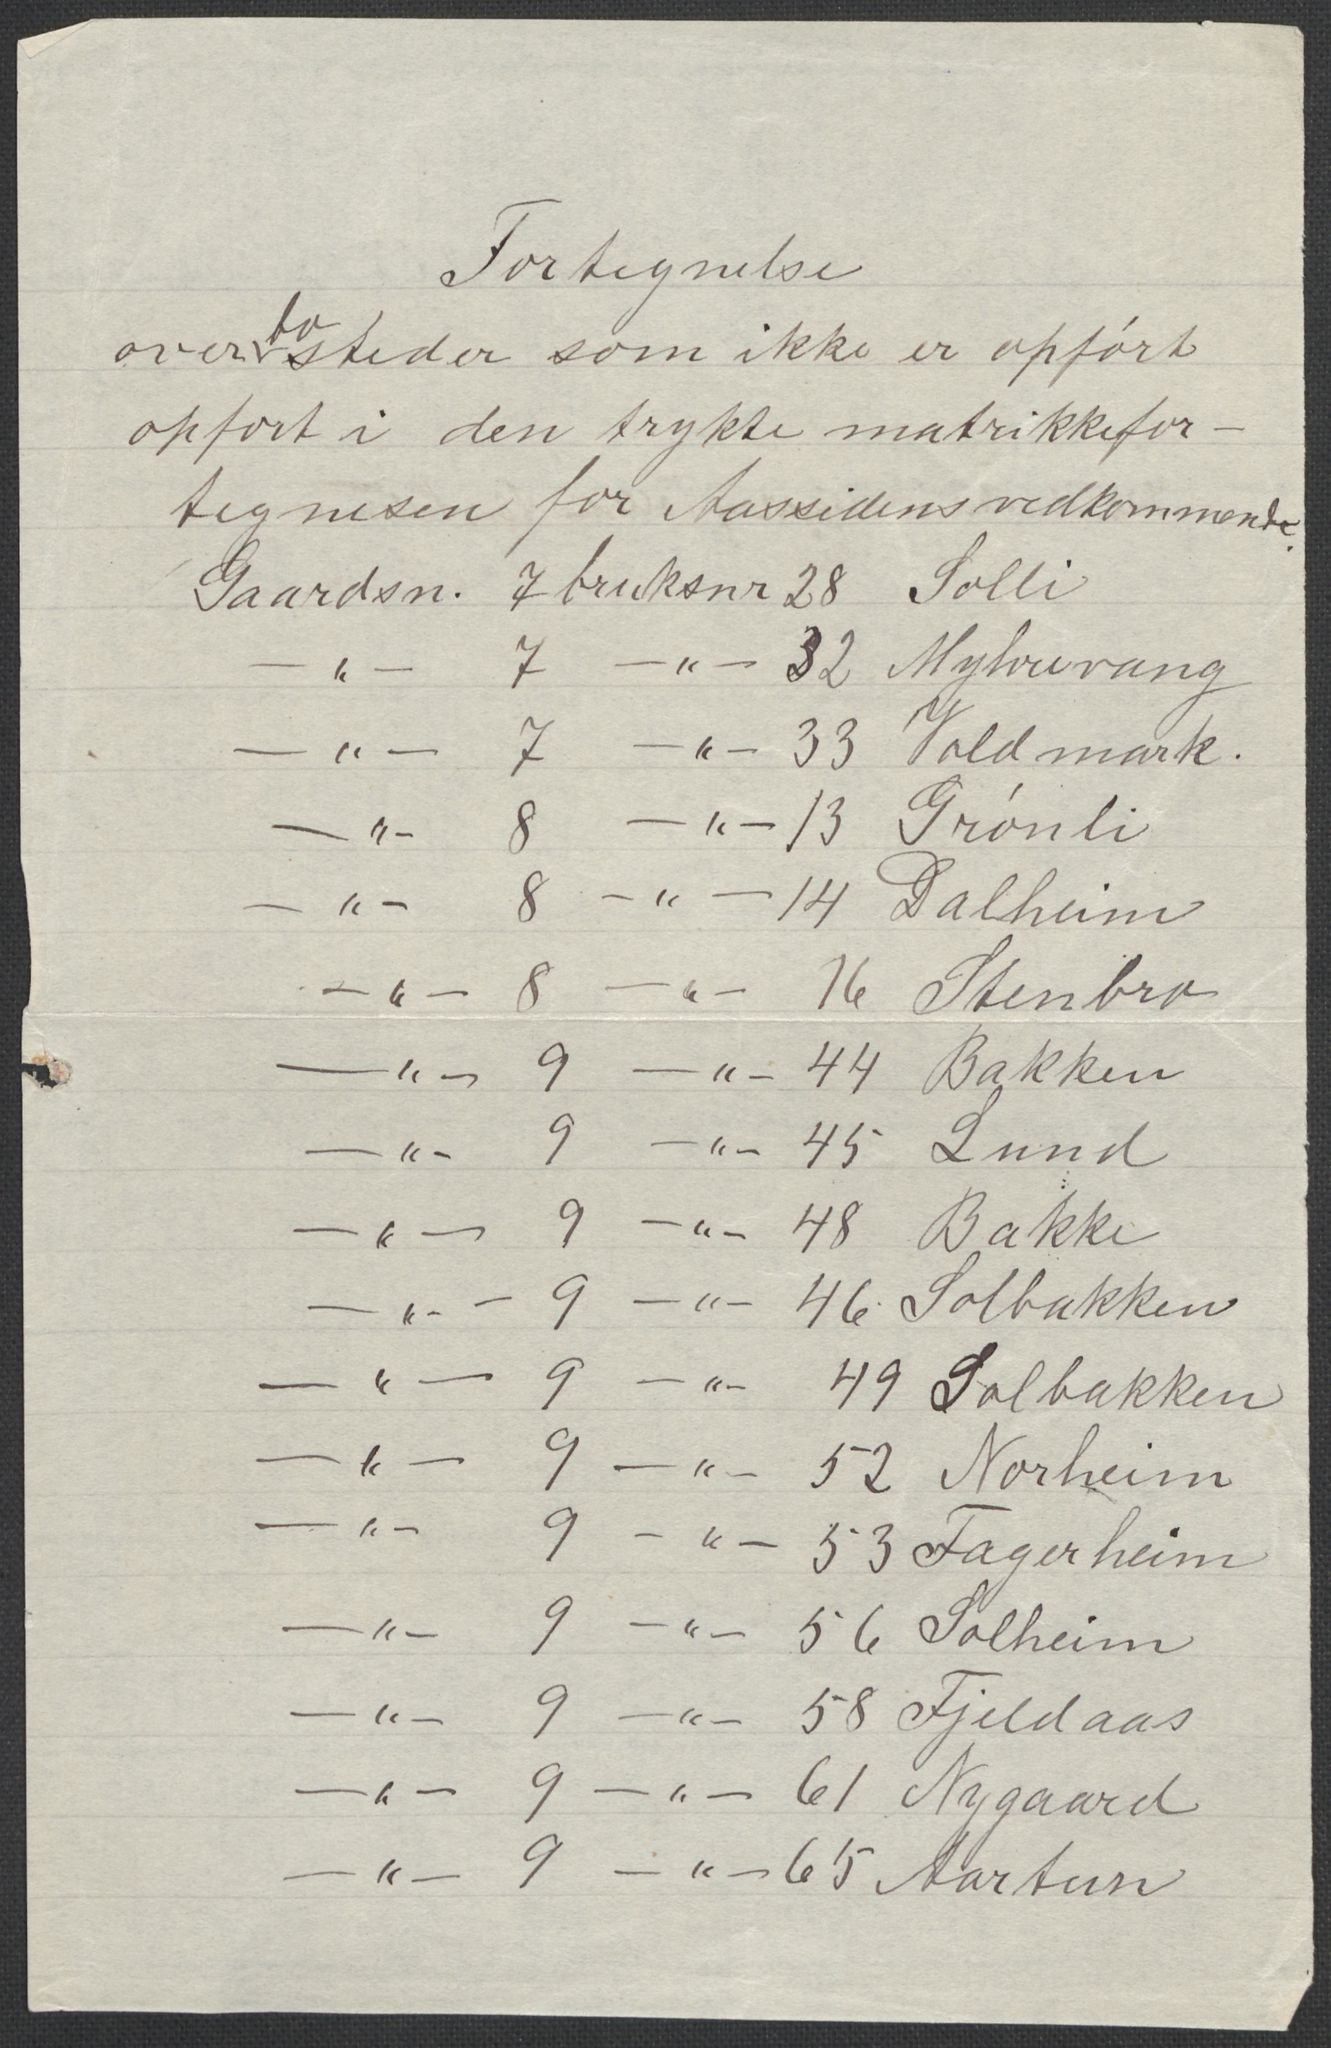 Fortegnelse
over bosteder som ikke er opført
opfort i den trykte matrikkefor-
tegnesen for Aassidens vedkommende.
Gaardsn. 7 bruksnr 28 Solli
—"— 7 —"— 32
—"— 7 —"— 33 Voldmark.
—"— 8 —"— 13 Grónli
—"— 8 —"— 14 Dalheim
—"— 8 —"— 16 Stenbro
—"— 9 —"— 44 Bakken
—"— 9 —"— 45 Lund
—"— 9 —"— 48 Bakke
—"— 9 —"— 46 Solbakken
—"— 9 —"— 49 Solbakken
—"— 9 —"— 52 Norheim
—"— 9 —"— 53 Fagerheim
—"— 9 —"— 56 Solheim
—"— 9 —"— 58 Fjeldaas
—"— 9 —"— 61 Nygaard
—"— 9 —"— 65 Aartun